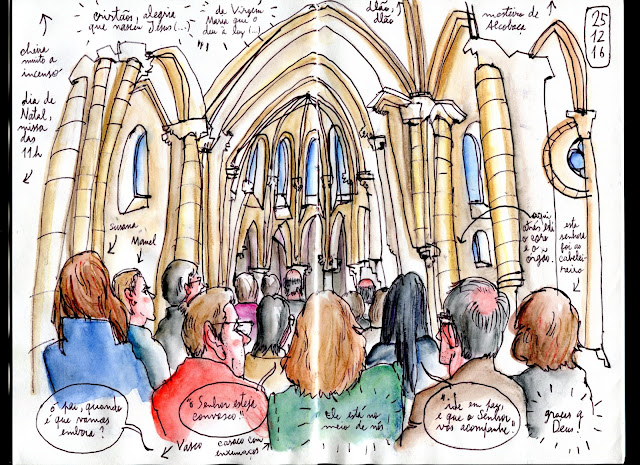 cheira
muito a
incenso
dia de
Natal,
missa
das
11h
cristãos, alegria
que nasceu Jesus (...)
de Virgem
Maria que o
deu à luz (...)
dlão,
dlão
mosteiro de
Alcobaça
25
12
16
Susana
Manel
aqui
atrás está
o coro
e o
órgão.
esta
senhora
foi ao
cabelei-
reiro
ó pai, quando
é que vamos
embora?
Vasco
"o Senhor esteja
convosco!"
casaco com
enchumaços
Ele está no
meio de nós
"ide em paz,
e que o Senhor
vos acompanhe."
graças a
Deus!